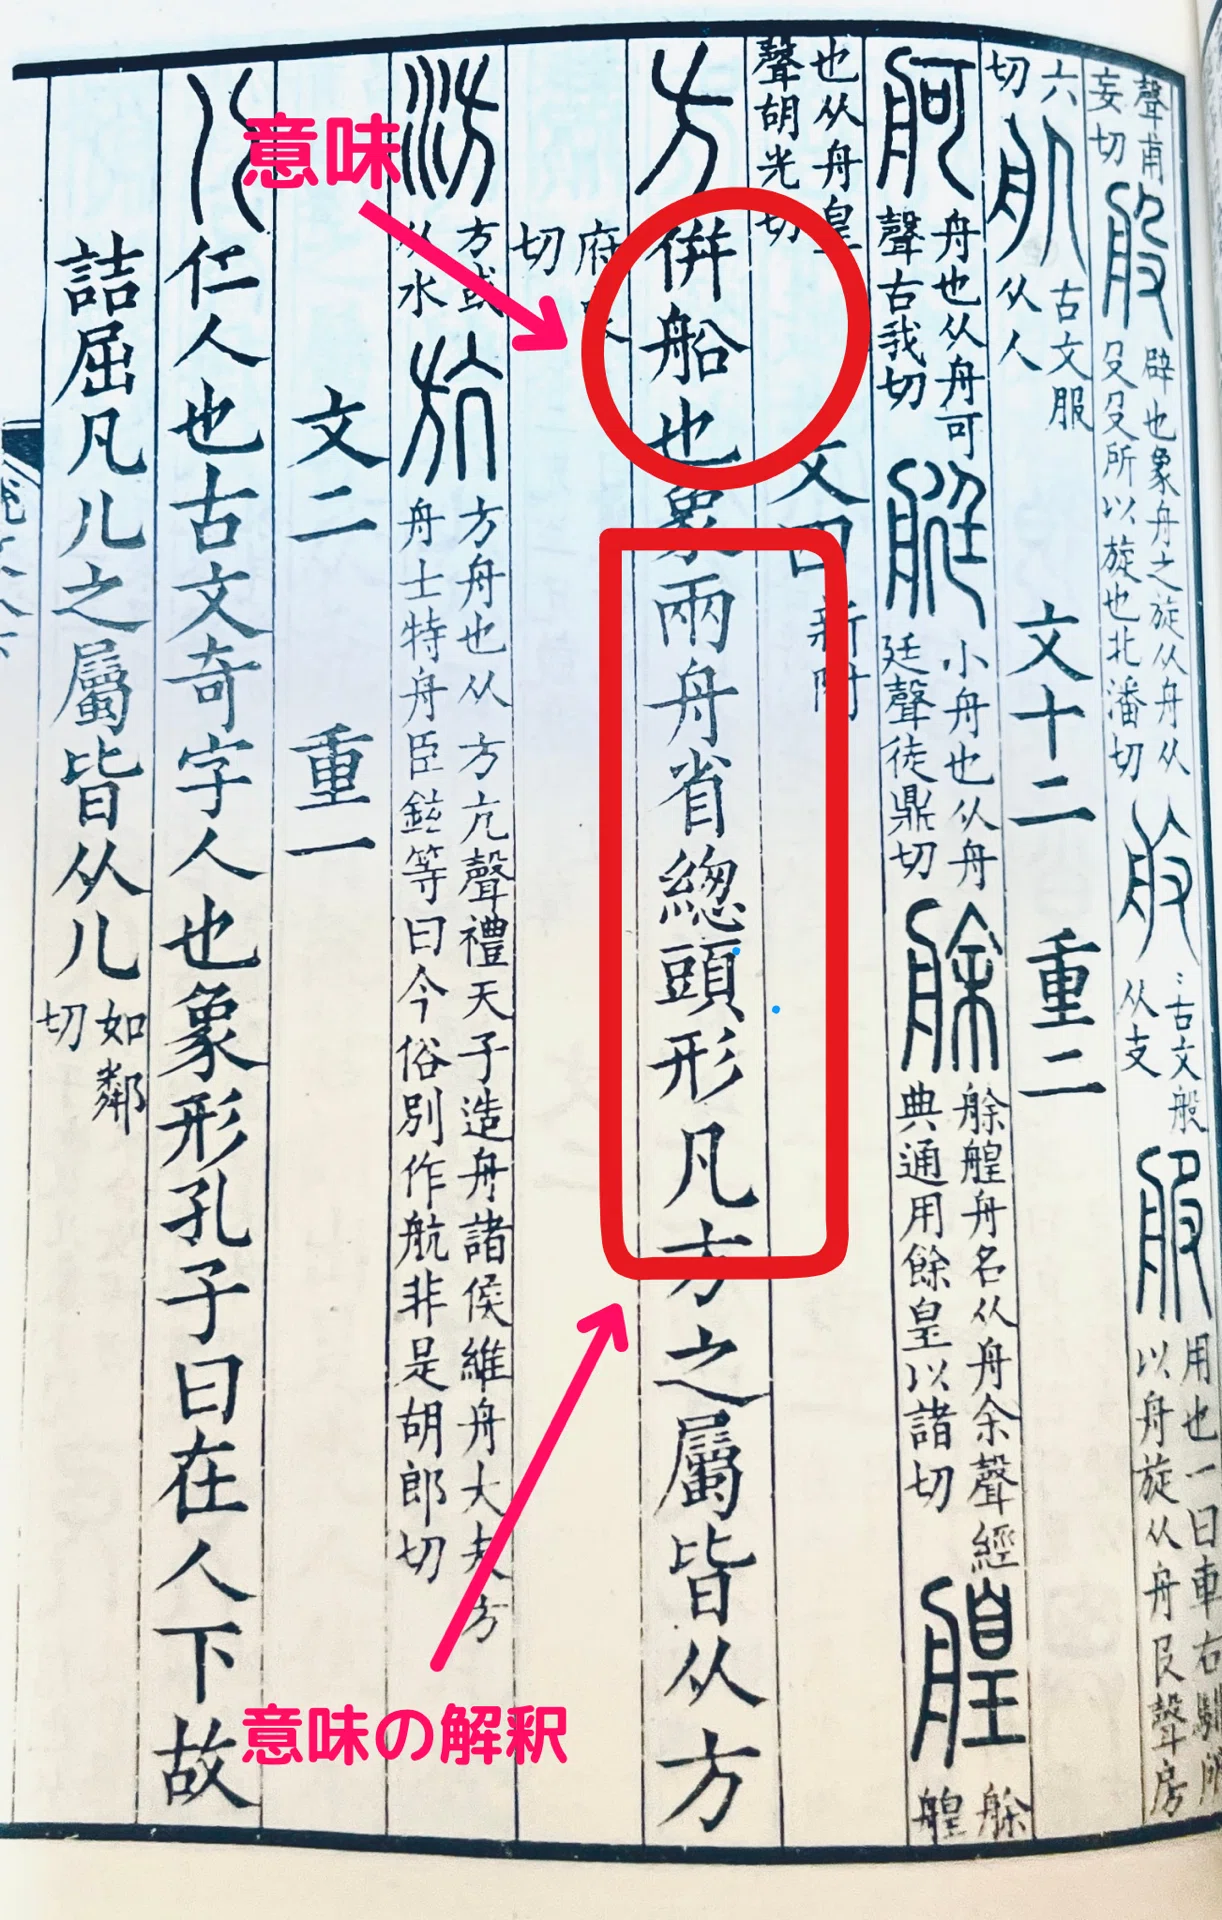 聲甫
妄切
般
辟也象舟之旋从舟从
殳殳所以旋也北潘切
古文般
从支
服
用也一曰車右
以舟旋从舟𠬝聲房
六
切
古文服
从人
文十二
重二
舸
舟也从舟可
聲古我切
艇
小舟也从舟
廷聲徒鼎切
艅
艅艎舟名从舟余聲經
典通用餘皇以諸切
艎
艅
艎
也从舟皇
聲胡光切
文四
新附
方
併船也象兩舟省總頭形凡方之屬皆从方
府
切
方或
从水
方舟也从方亢聲禮天子造舟諸侯維舟大夫方
舟士特舟臣鉉等曰今俗別作航非是胡郎切
文二
重一
儿
仁人也古文奇字人也象形孔子曰在人下故
詰屈凡儿之屬皆从儿
如鄰
切
意味
意味の解釈